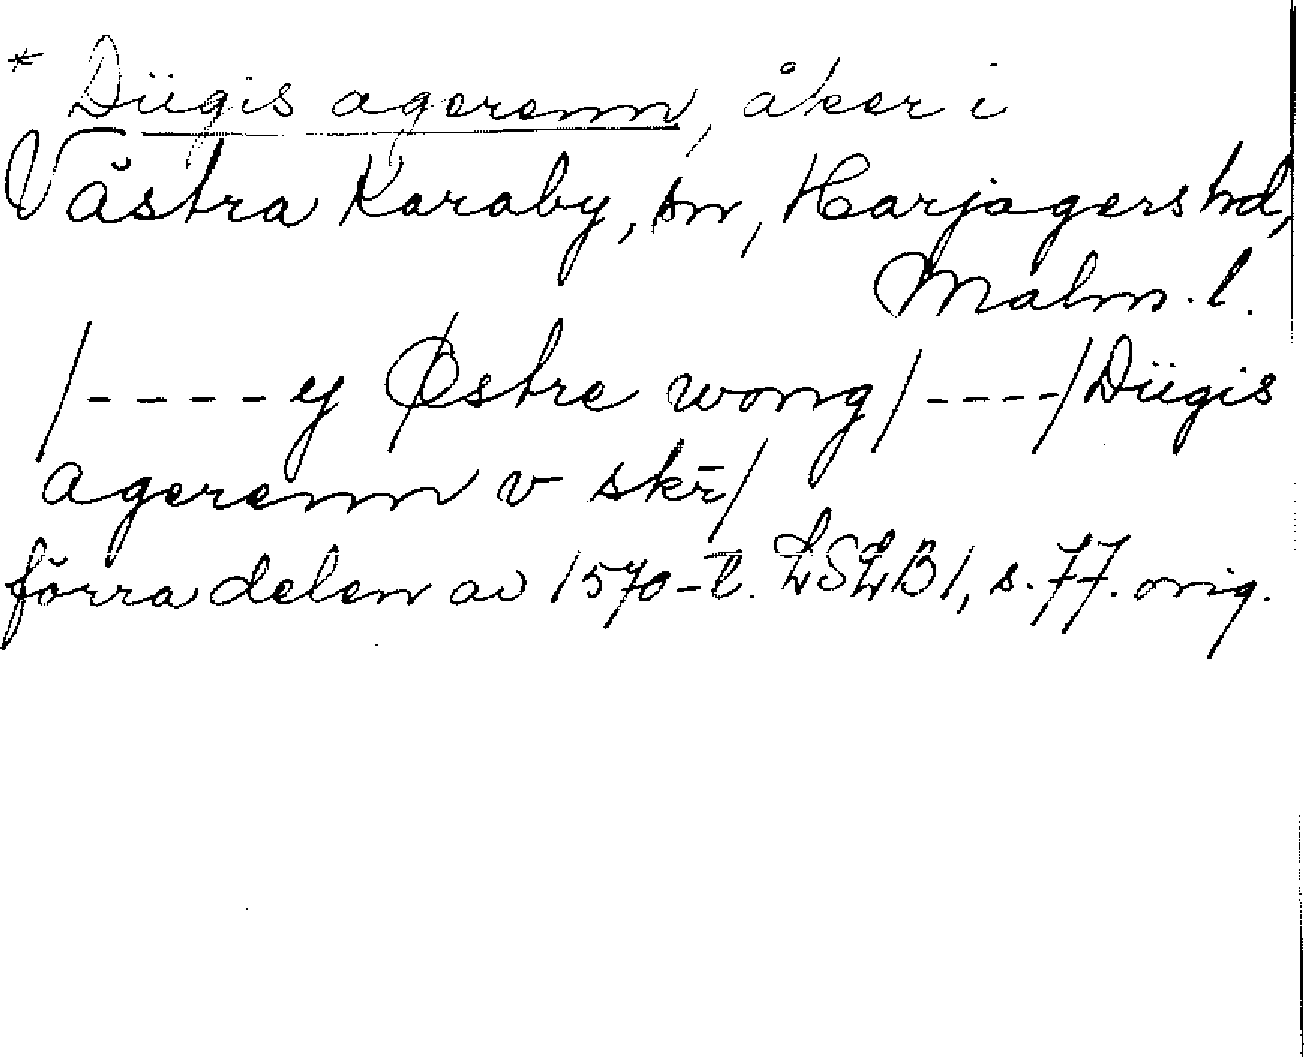 * Dügis agerenn, åker i
Västra Karaby, sn, Harjagers hd,
Malm. l.
/-----ej Østre wong/----/Dügis
agerenn v skr̄/
förra delen av 1570-t. LSLB1, s. 77. orig.